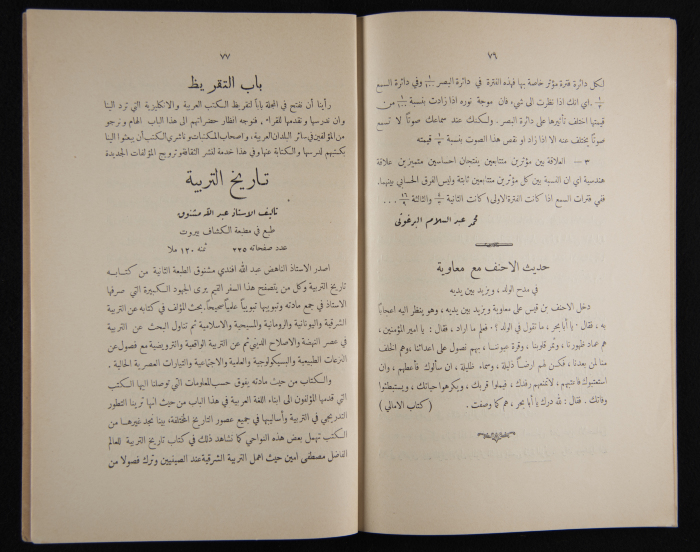 ٧٦
لكل دائرة فترة مؤثر خاصة بها فهذه الفترة في دائرة البصر وفي دائرة السمع
اي انك اذا نظرت الى شيء فان موجة نوره اذا زادت بنسبة من
قيمتها اختلف تأثيرها على دائرة البصر. ولكنك عند سماعك صوتًا لا تسمع
صوتًا يختلف عنه الا اذا زاد او نقص هذا الصوت بنسبة قيمته
٣ — العلاقة بين مؤثرين متتابعين ينتجان احساسين متميزين علاقة
هندسية اي ان النسبة بين كل مؤثرين متتابعين ثابتة وليس الفرق الحسابي بينهما.
ففي فترات السمع اذا كانت الفترة الاولى ١ كانت الثانية والثالثة ١٦/٩ ...
محمد عبد السلام البرغوثي
حديث الاحنف مع معاوية
في مدح الولد ، ويزيد بين يديه
دخل الاحنف بن قيس على معاوية ويزيد بين يديه ، وهو ينظر اليه اعجابًا
به ، فقال . يا أبا بحر ، ما تقول في الولد ؟ . فعلم ما اراد ، فقال : يا امير المؤمنين ،
هم عماد ظهورنا ، وثمر قلوبنا ، وقرة عيوننا ، بهم نصول على اعدائنا ، وهم الخلف
منا لمن بعدنا ، فكن لهم ارضًا ذليلة ، وسماء ظليلة ، ان سألوك فأعطهم ، وان
استعتبوك فأعتبهم ، لا تمنعهم رفدك ، فيملوا قربك ، ويكرهوا حياتك ، ويستبطئوا
وفاتك . فقال : لله درك يا أبا بحر ، هم كما وصفت . (كتاب الامالي)
٧٧
باب التقريظ
رأينا أن نفتح في المجلة بابًا لتقريظ الكتب العربية والانكليزية التي ترد الينا
وان ندرسها ونقدمها للقراء ، فنوجه انظار حضراتهم الى هذا الباب الهام ونرجو
من المؤلفين في سائر البلدان العربية ، واصحاب المكتبات وناشري الكتب أن يبعثوا الينا
بكتبهم لندرسها والكتابة عنها وفي هذا خدمة لنشر الثقافة وترويج المؤلفات الجديدة
تاريخ التربية
تاليف الاستاذ عبد الله مشنوق
طبع في مطبعة الكشاف بيروت
عدد صفحاته ٢٣٥ ثمنه ١٣٠ ملا
اصدر الاستاذ الناهض عبد الله افندي مشنوق الطبعة الثانية من كتابه
تاريخ التربية وكل من يتصفح هذا السفر القيم يرى الجهود الكبيرة التي صرفها
الاستاذ في جمع مادته وتبويبها تبويبًا علميًا صحيحًا . بحث المؤلف في كتابه عن التربية
الشرقية واليونانية والرومانية والمسيحية والاسلامية ثم تناول البحث عن التربية
في عصر النهضة والاصلاح الديني ثم عن التربية الواقعية والترويضية مع فصول عن
النزعات الطبيعية والبسيكولوجية والعلمية والاجتماعية والتيارات العصرية الحالية .
والكتاب من حيث مادته يفوق حسب المعلومات التي توصلنا اليها الكتب
التي قدمها المؤلفون الى ابناء اللغة العربية في هذا الباب من حيث انها ترينا التطور
التدريجي في التربية وأساليبها في جميع عصور التاريخ المختلفة ، بينا نجد غيرها من
الكتب تهمل بعض هذه النواحي كما نشاهد ذلك في كتاب تاريخ التربية للعالم
الفاضل مصطفى امين حيث اهمل التربية الشرقية عند الصينيين وترك فصولا من